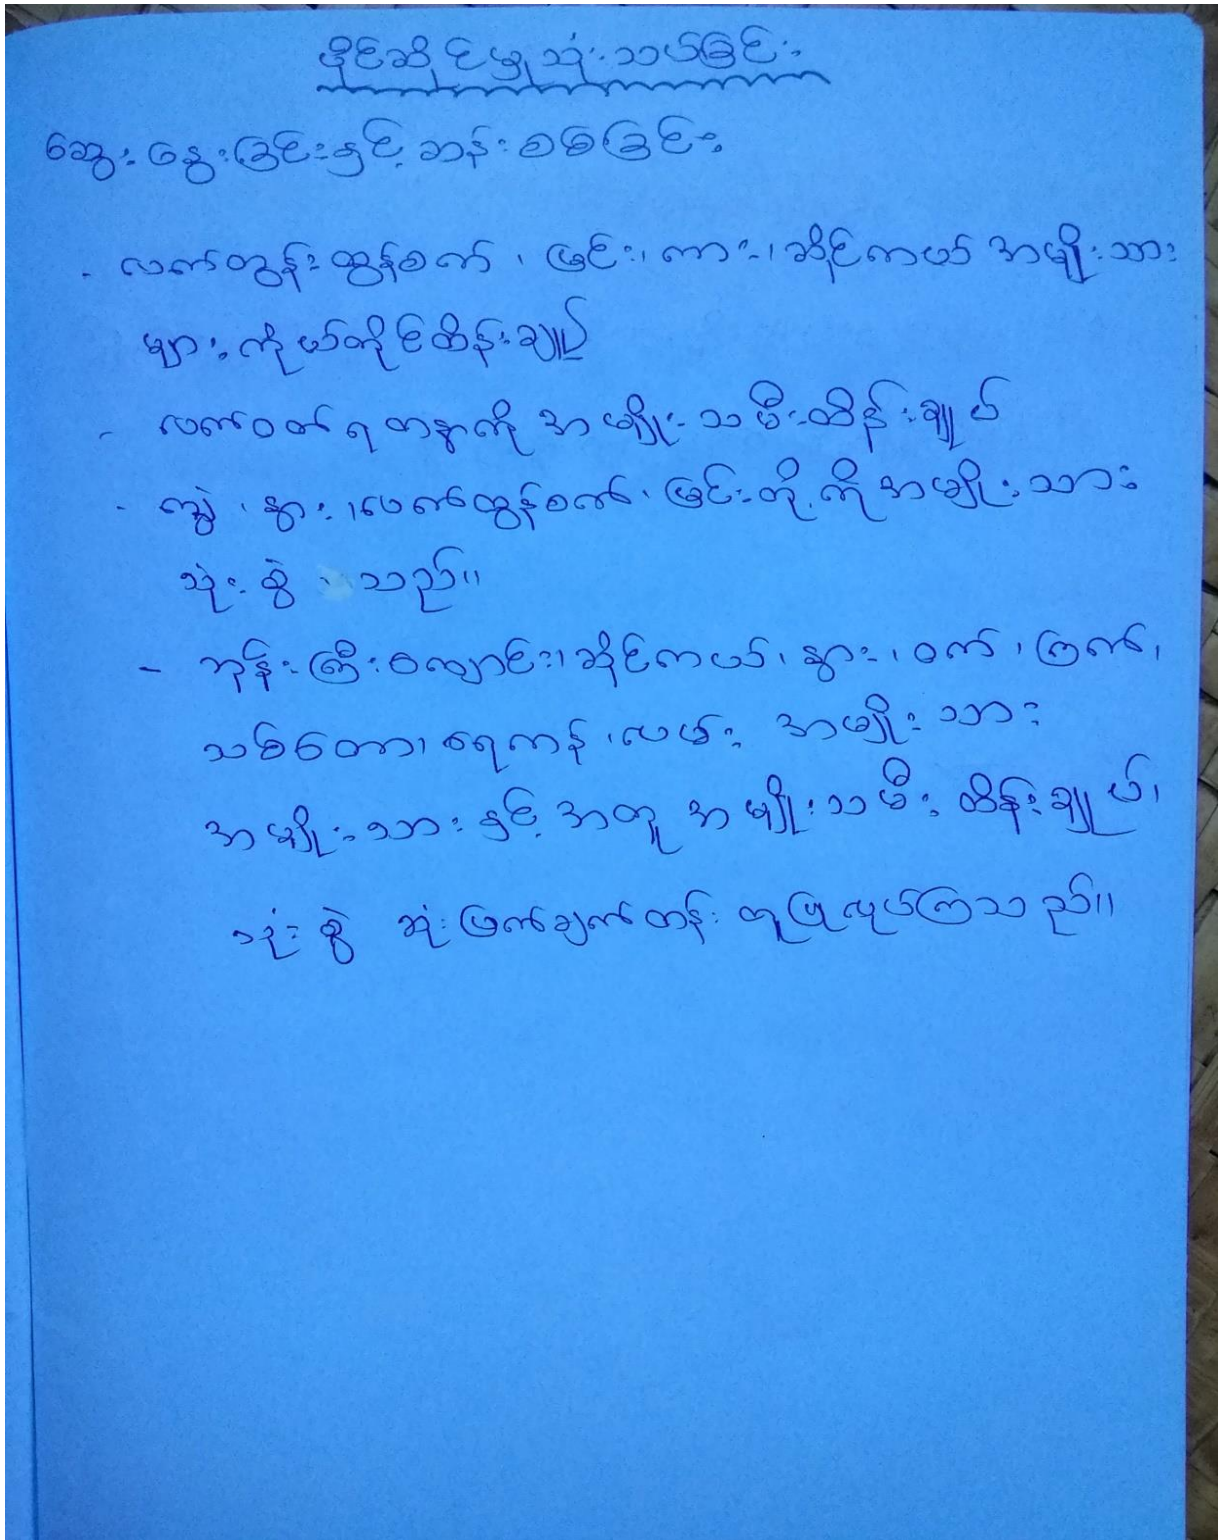 ပိုင်ဆိုင်မှုသုံးသပ်ခြင်း
ဆွေးနွေးခြင်းနှင့်ဆန်းစစ်ခြင်း
- လက်တွန်းထွန်စက်၊ မြင်း၊ ကား၊ ဆိုင်ကယ် အမျိုးသား
များကိုယ်တိုင်ထိန်းချုပ်
- လက်ဝတ်ရတနာကို အမျိုးသမီးထိန်းချုပ်
- ကျွဲ၊ နွား၊ လက်ထွန်စက်၊ မြင်းတို့ကို အမျိုးသား
သုံးစွဲ သည်။
- ဘုန်းကြီးကျောင်း၊ ဆိုင်ကယ်၊ နွား၊ ဝက်၊ ကြက်၊
သစ်တော၊ ရေကန်၊ လမ်း အမျိုးသား
အမျိုးသားနှင့်အတူ အမျိုးသမီးထိန်းချုပ်၊
သုံးစွဲ ဆုံးဖြတ်ချက်တန်းတူပြုလုပ်ကြသည်။